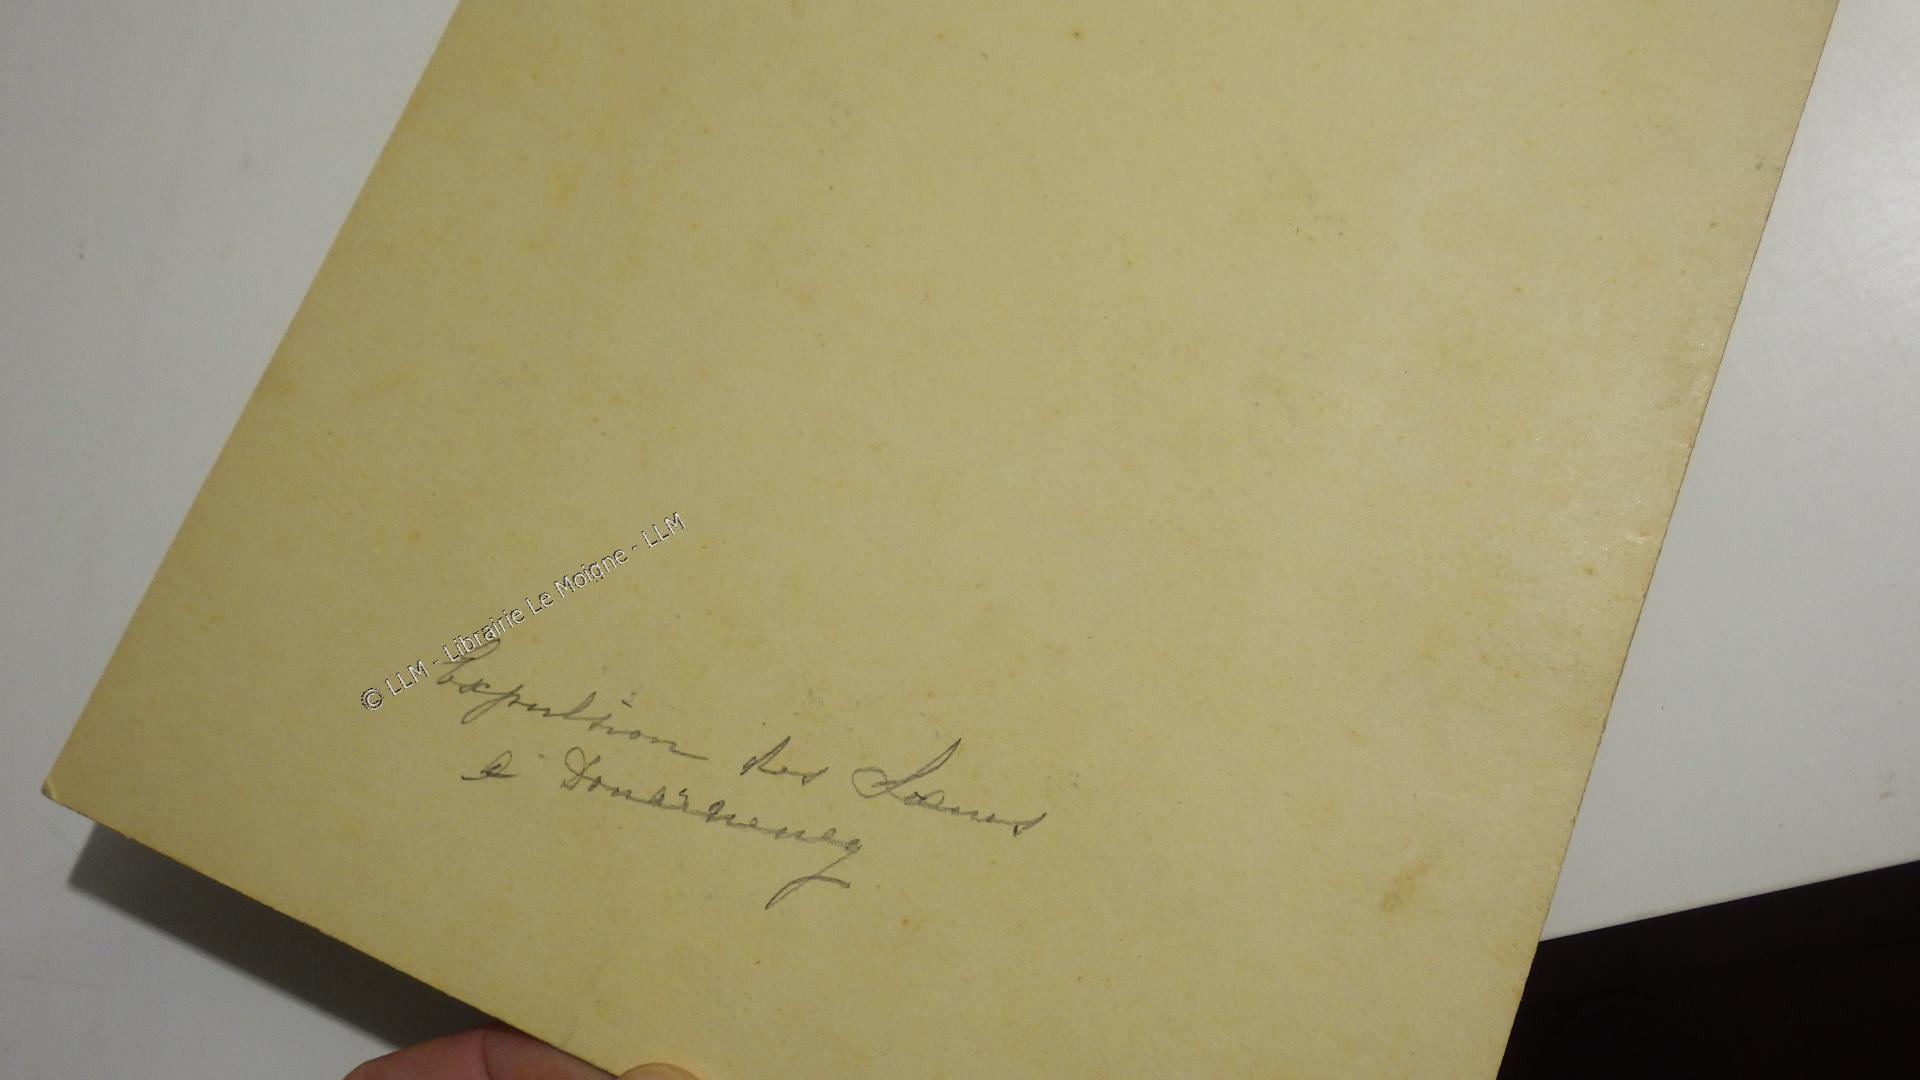 © LLM - Librairie Le Moigne - LLM
Expulsion des Sœurs
à Douarnenez